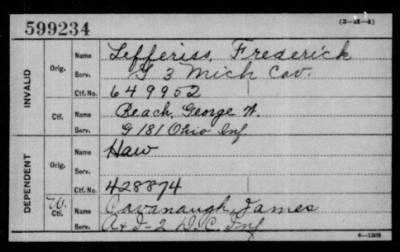 599234
(3-M-4)
INVALID
Orig.
Name Lefferiss, Frederick
Serv. G 3 Mich Cav.
Ctf. No. 649952
Ctf.
Name Beach, George W.
Serv. G 181 Ohio Inf
DEPENDENT
Orig.
Name Haw
Serv.
Ctf. No. 428874
W.
Ctf.
Name Cavanaugh, James
Serv. A & I-2 D.C. Inf